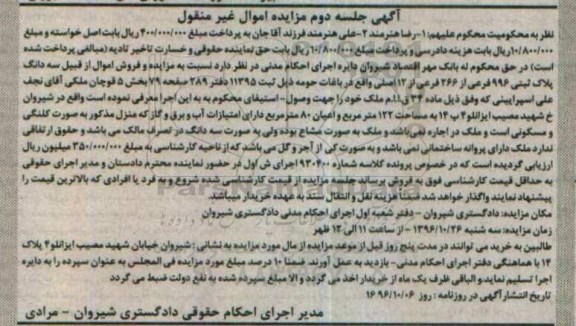 آگهی جلسه دوم مزایده اموال غیر منقول
نظر به محکومیت محکوم علیهم: ۱-رضا هنرمند ۲-علی هنرمند فرزند آقا جان به پرداخت مبلغ ۴۰۰/۰۰۰/۰۰۰ ریال بابت اصل خواسته و مبلغ
۱۰/۸۰۰/۰۰۰ ریال بابت هزینه دادرسی و پرداخت مبلغ ۱۰/۸۰۰/۰۰۰ ریال بابت حق نماینده حقوقی و خسارت تاخیر تادیه (مبالغی پرداخت شده
است) در حق محکوم له بانک مهر اقتصاد شیروان دایره اجرای احکام مدنی در نظر دارد نسبت به مزایده و فروش اموال از قبیل سه دانگ
پلاک ثبتی ۹۹۶ فرعی از ۲۶۶ فرعی از ۱۲ اصلی واقع در باغات حومه ذیل ثبت ۱۱۳۹۵ دفتر ۲۸۹ صفحه ۷۹ بخش ۵ قوچان ملکی آقای نجف
علی اسپراینی که وفق ذیل ماده ۳۴ ق.ا.م ملک خود را جهت وصول - استیفای محکوم به به این اجرا معرفی نموده است واقع در شیروان
خ شهید مصیب ایزانلو ۴ پ ۱۴ به مساحت ۱۲۲ متر مربع و اعیان ۸۰ مترمربع دارای امتیازات آب و برق و گاز که منزل مذکور به صورت کلنگی
و مسکونی است و ملک در اجاره نمی باشد و ملک به صورت مشاع بوده ولی به صورت سه دانگ در تصرف مالک می باشد و حقوق ارتفاقی
ندارد ملک دارای پروانه ساختمانی نمی باشد و به صورت کی از آجر و گل می باشد که از ناحیه کارشناسی به مبلغ ۳۵۰/۰۰۰/۰۰۰ میلیون ریال
ارزیابی گردیده است که در خصوص پرونده کلاسه شماره ۹۳۰۴۰۰ اجرای ش اول در حضور نماینده محترم دادستان و مدیر اجرای حقوقی
به حداقل قیمت کارشناسی فوق به فروش برساند جلسه مزایده از قیمت کارشناسی شده شروع و به فرد یا افرادی که بالاترین قیمت را
پیشنهاد نمایند واگذار خواهد شد ضمنا هزینه نقل و انتقال سند به عهده خریدار میباشد.
مکان مزایده: دادگستری شیروان - دفتر شعبه اول اجرای احکام مدنی دادگستری شیروان
زمان مزایده: سه شنبه ۱۳۹۶/۱۰/۲۶ - از ساعت ۱۱ الی ۱۲ ظهر
طالبین به خرید می توانند در مدت پنج روز قبل از موعد مزایده از مال مورد مزایده به نشانی: شیروان خیابان شهید مصیب ایزانلو ۴ پلاک
۱۴ با هماهنگی دفتر اجرای احکام مدنی- بازدید به عمل آورند. ضمنا ۱۰ درصد مبلغ مورد مزایده فی المجلس به عنوان سپرده را به دایره
اجرا تسلیم نماید و الباقی ظرف یک ماه از خریدار اخذ می گردد و الا مبلغ سپرده شده به نفع دولت ضبط می گردد
تاریخ انتشار آگهی در روزنامه: روز ۹۶/۱۰/۰۶ ۱۶
مدیر اجرای احکام حقوقی دادگستری شیروان - مرادی